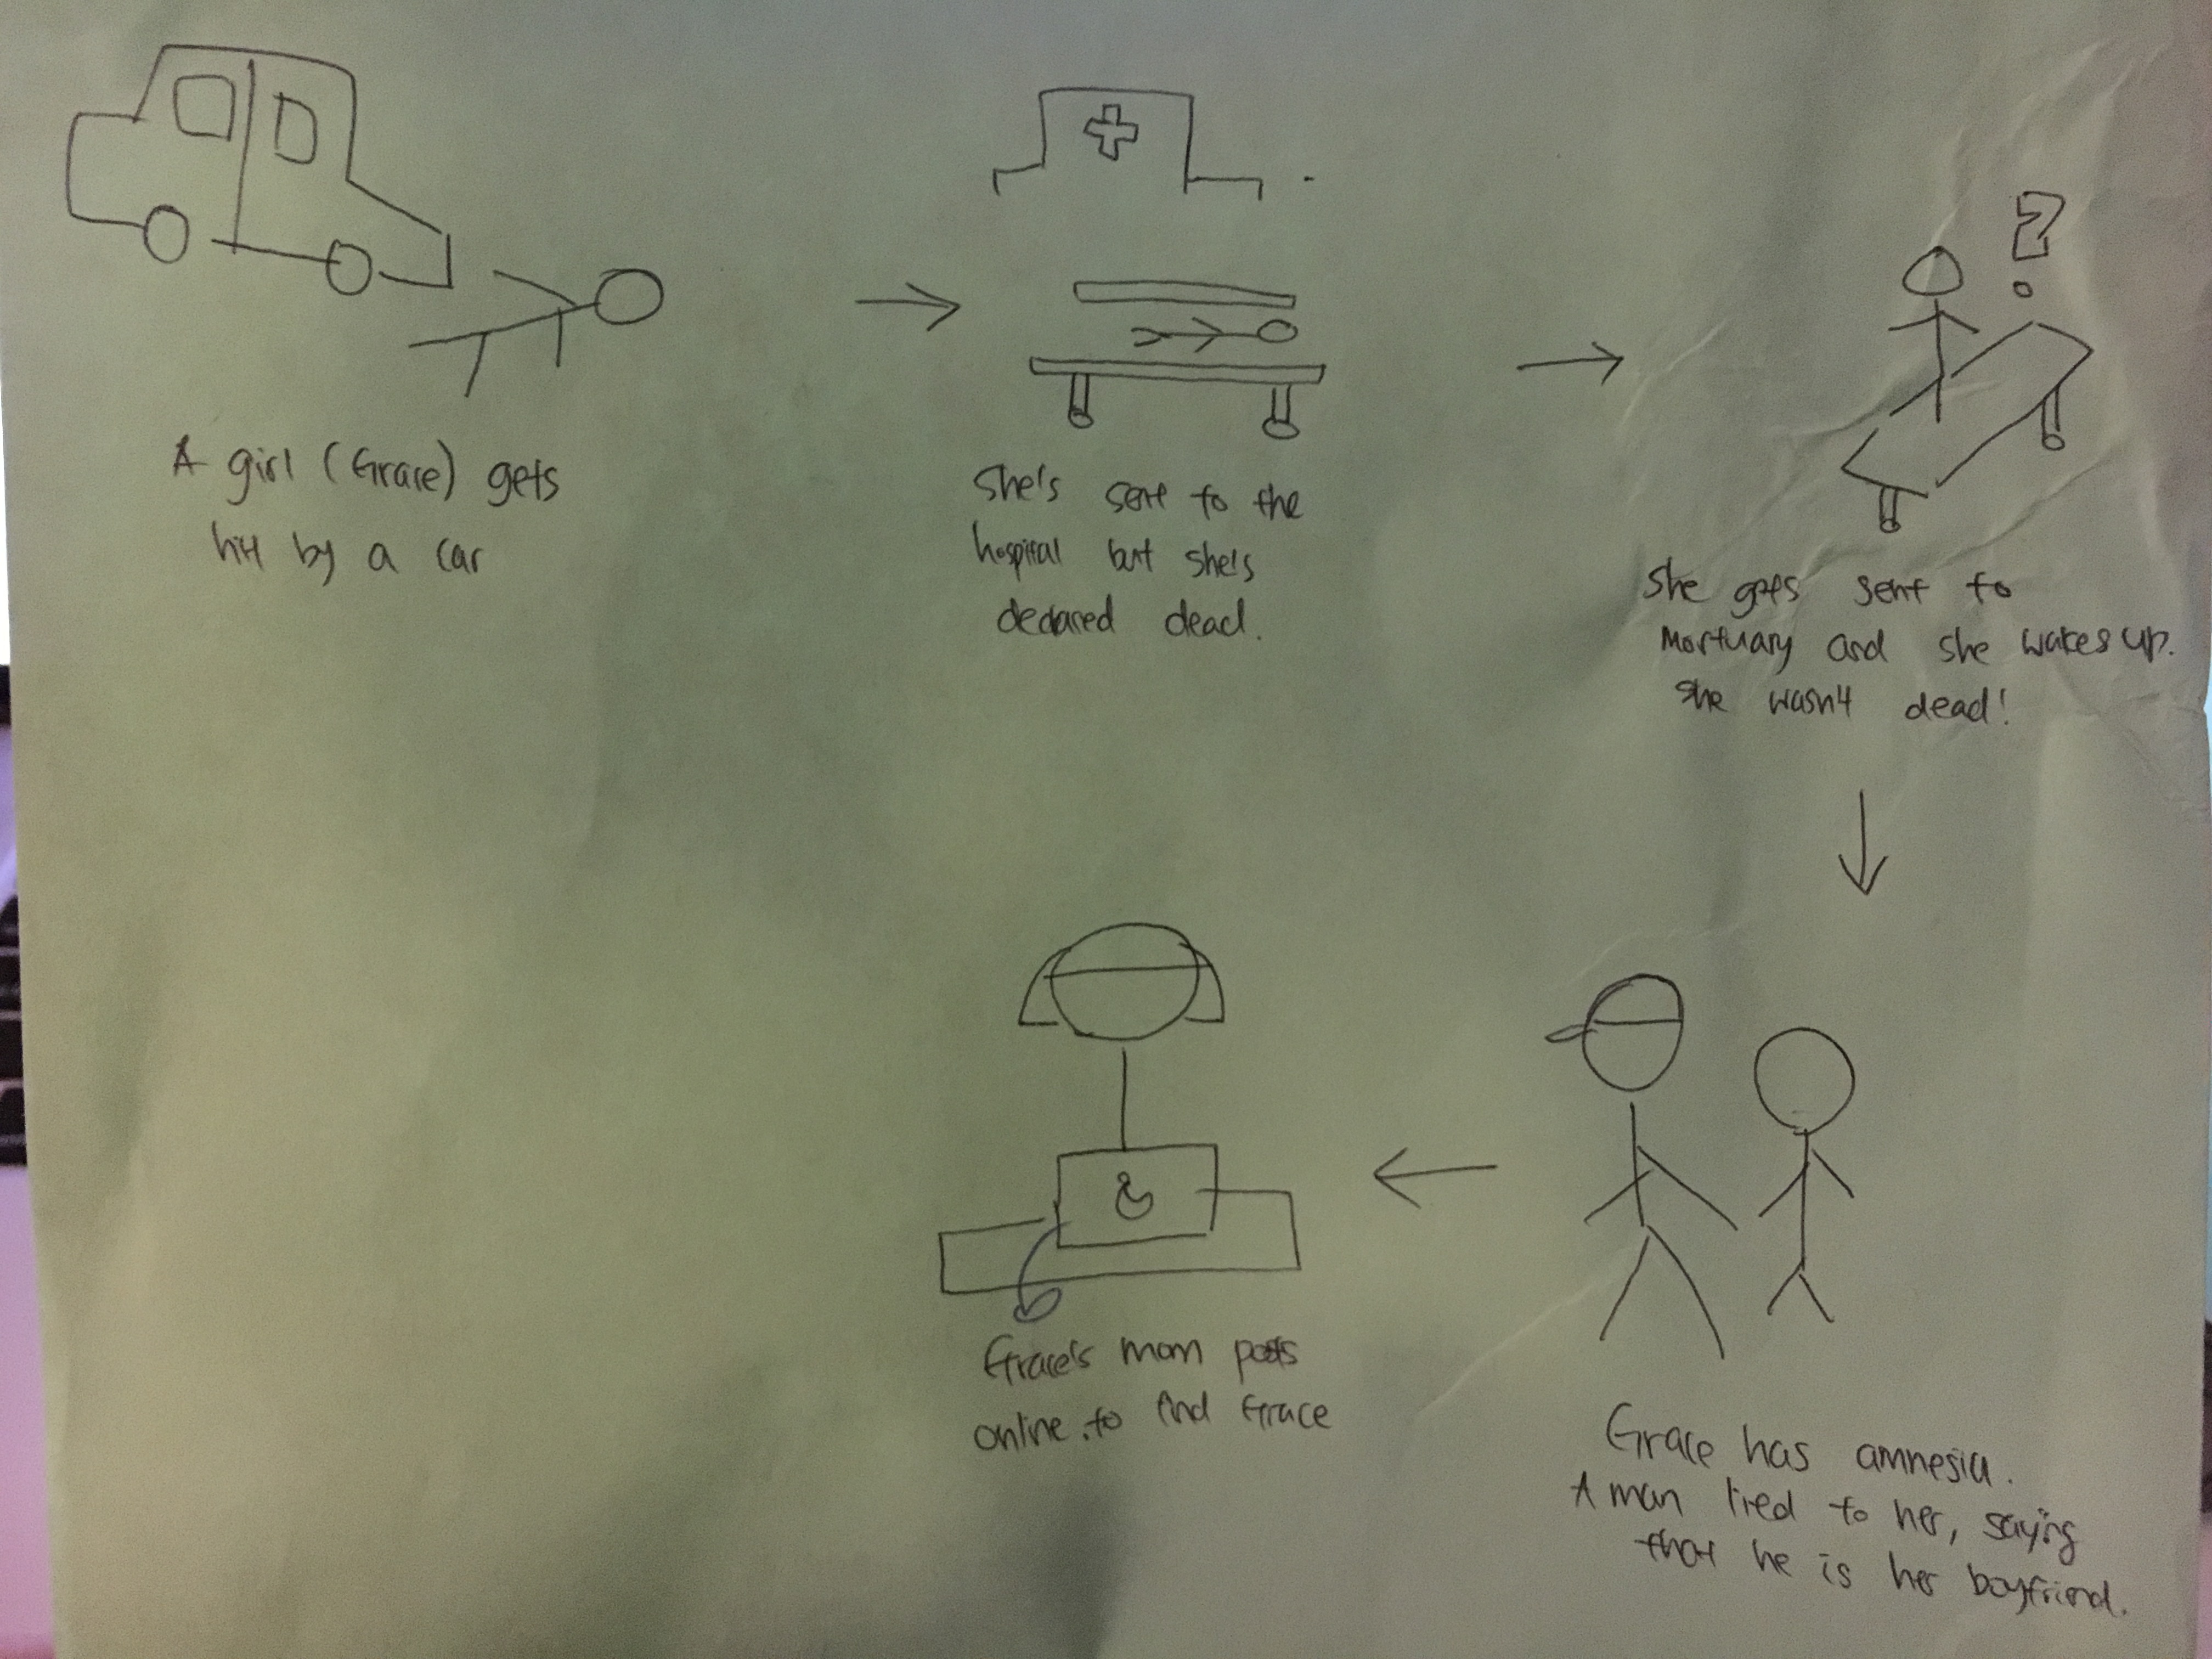 A girl (Grace) gets
hit by a car
She's sent to the
hospital but she's
declared dead.
?
She gets sent to
Mortuary and she wakes up.
She wasn't dead!
Grace has amnesia.
A man lied to her, saying
that he is her boyfriend.
Grace's mom posts
online to find Grace